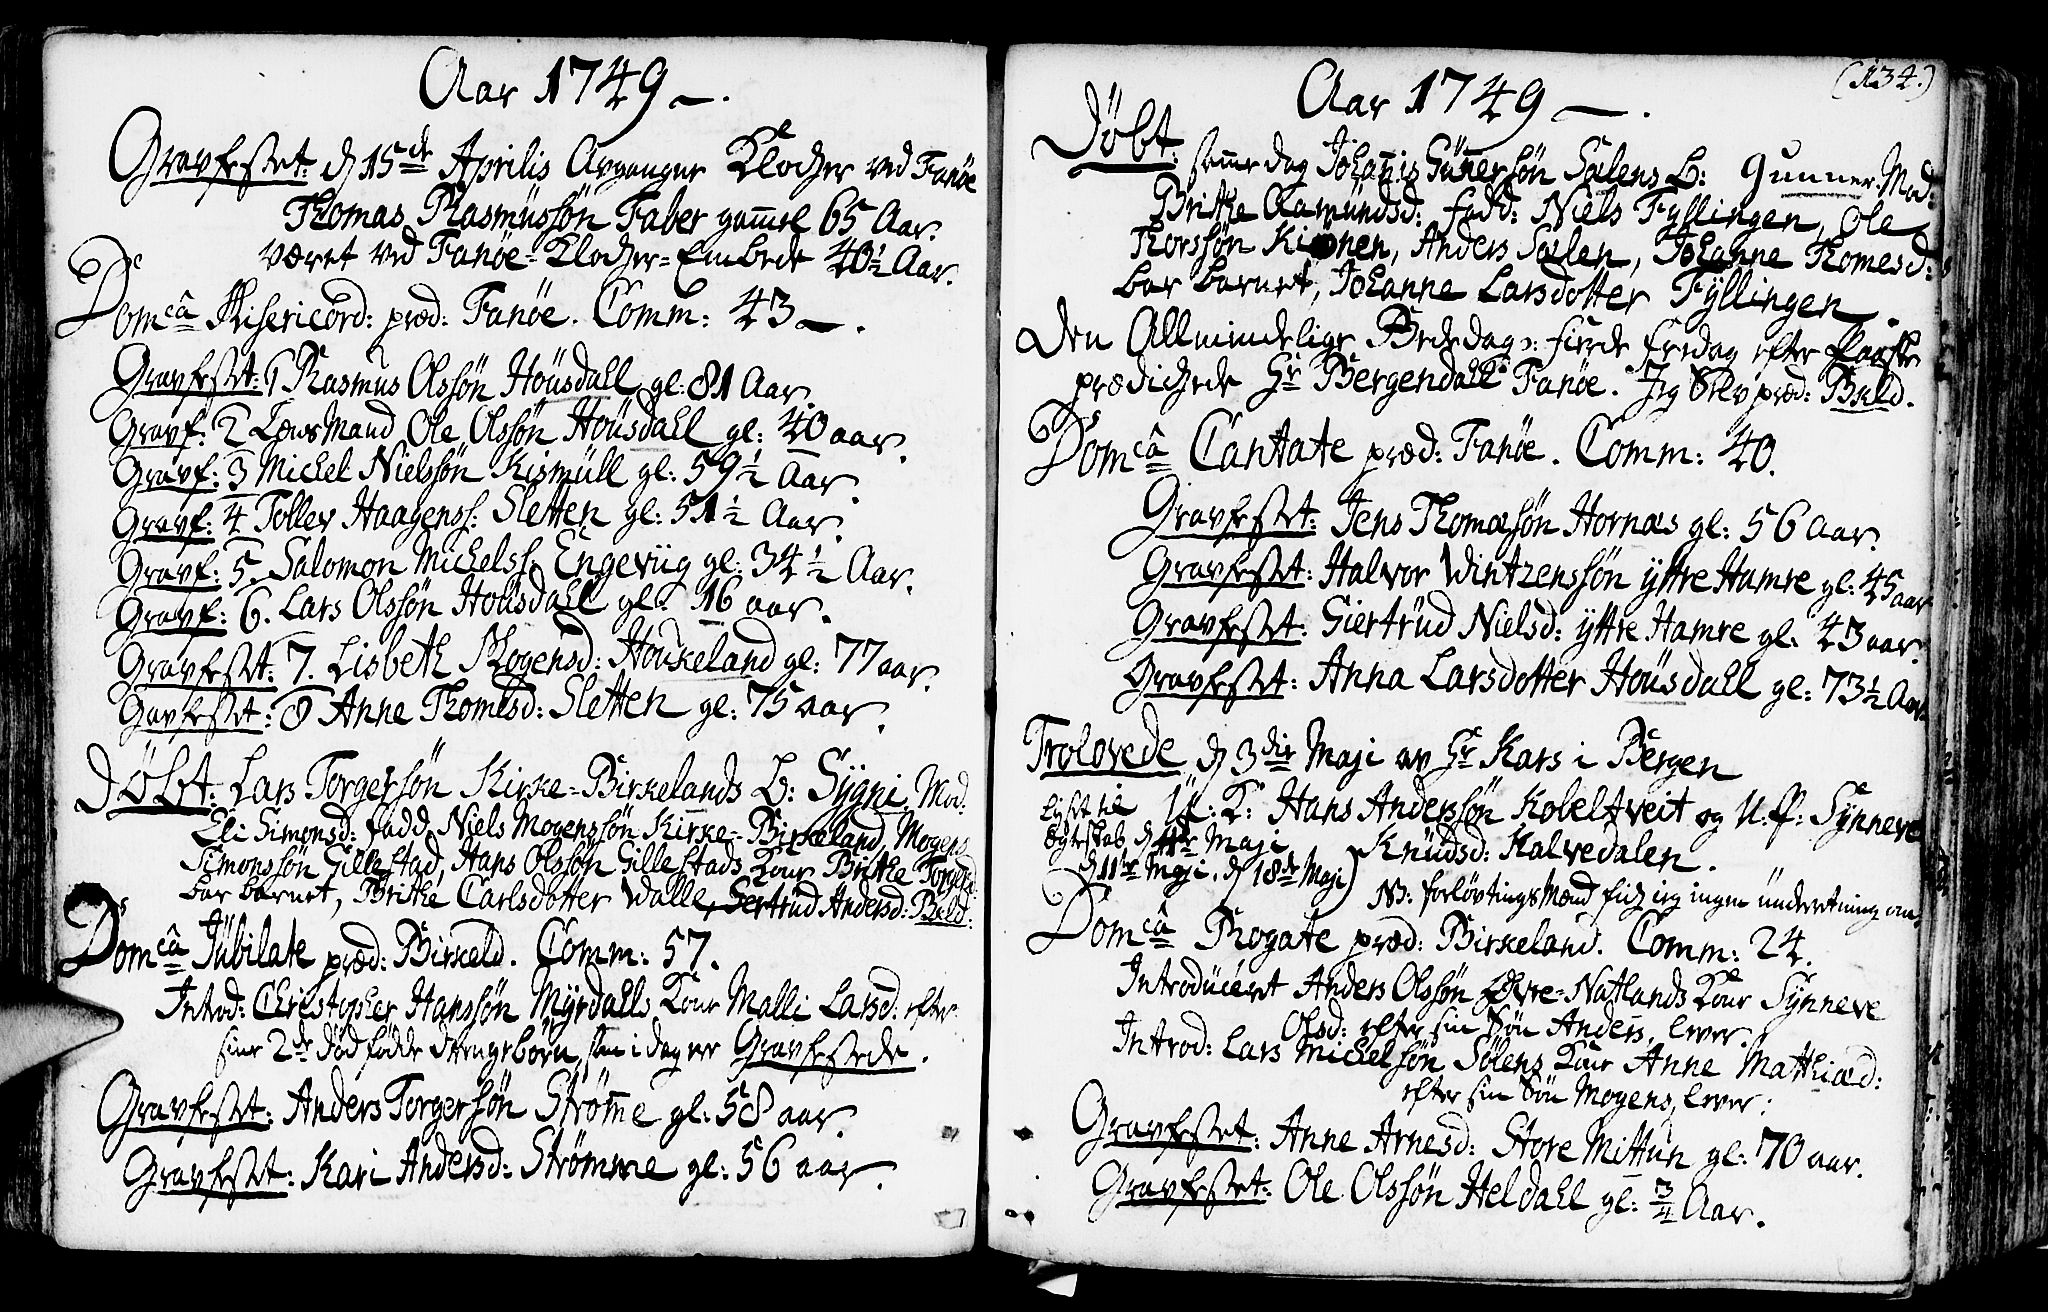 Aar 1749 —.
Gravfestet: d 15de Aprilis Avgangne Klocher ved Fanøe
Thomas Rasmussøn Faber gamel 65 Aar.
været ved Fanøe-Klocher-Embede 40½ Aar.
Domcâ Misericord: præd: Fanøe. Comm: 43 —.
Gravfestet: 1 Rasmus Olssøn Housdall gl: 81 Aar.
Gravf: 2 Læns Mand Ole Olssøn Housdall gl: 40 aar.
Gravf: 3 Michel Nielssøn Kismüll gl: 59½ Aar.
Gravf: 4 Tollev Haagenss: Sletten gl: 51½ Aar.
Gravf: 5 Salomon Michelss: Engeviig gl: 34½ Aar.
Gravf: 6. Lars Olssøn Housdall gl: 16 aar.
Gravfestet: 7. Lisbeth Mogensd: Houkeland gl: 77 aar.
Gavfestet: 8 Anne Thomesd: Sletten gl: 75 aar.
Døbt: Lars Torgersøn Kirke-Birkelands B: Sygni. Mod.
Eli Simonsd: fadd. Niels Mogenssøn Kirke-Birkeland, Mogens
Simonssøn Gillestad, Hans Olssøn Gillestads Kone Brithe Torgersd:
bar barnet, Brithe Carlsdotter Walle, Gertrud Andersd: Bkld:
Domcâ Jubilate præd: Birkeld. Comm: 57.
Introd: Christopher Hanssøn Myrdalls Kone Malli Larsd: efter
sine 2de død fødde drengebørn, som i dag er Gravfestede.
Gravfestet: Anders Torgersøn Strømme gl: 58 aar.
Gravfestet: Kari Andersd: Strømme gl: 56 aar.
(134.)
Aar 1749 —.
Døbt: samme dag Johannis Gunnersøn Sælens B: Gunner. Mod:
Brithe Aamundsd: fadd: Niels Fyllingen, Ole
Thorssøn Kinnen, Anders Sælen, Johanne Thomesd:
bar barnet, Johanne Larsdotter Fyllingen
Den Allmindelige Bededag: fierde fredag efter Paaske
prædichede Hr Bergendahl Fanøe. Jeg Selv præd: Bkld.
Domcâ Cantate præd: Fanøe. Comm: 40.
Gravfestet: Jens Thomæsøn Hornæs gl: 56 Aar.
Gravfestet: Halvor Wintzenssøn yttre Hamre gl: 45 aar
Gravfestet: Giertrud Nielsd: yttre Hamre gl: 43 aar.
Gravfestet: Anna Larsdotter Housdall gl: 73½ Aar
Trolovede d 3die Maji av Hr Kars i Bergen
Uf: K: Hans Anderssøn Kobeltveit og U: ff: Synneve
Knudsd: Kalvedalen.
Lyst til
Egteskab d 4de Maji
d 11te Maji. d 18de Maji)
NB: forløvtings Mænd fich ieg ingen underetning om,
Domcâ Rogate præd: Birkeland. Comm: 24.
Introduceret Anders Olssøn Øvre-Natlands Kone Synneve
Olsd: efter sin Søn Anders, lever.
Introd: Lars Michelsøn Sølens Kone Anne Mathiæd:
efter sin Søn Mogens, lever:
Gravfestet: Anne Arnesd: Store Mittun gl: 70 aar.
Gravfestet: Ole Olssøn Heldall gl: ¾ Aar.